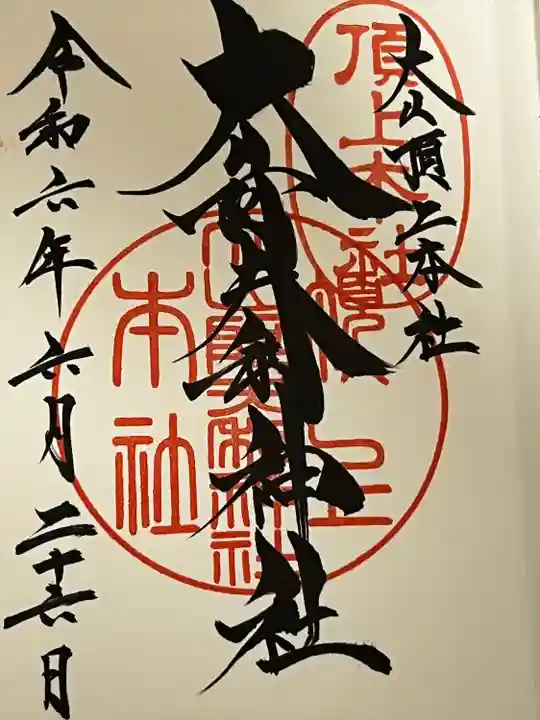 大山頂上本社
頂上本社
大山阿夫利神社
頂上
本社
令和六年六月二十六日